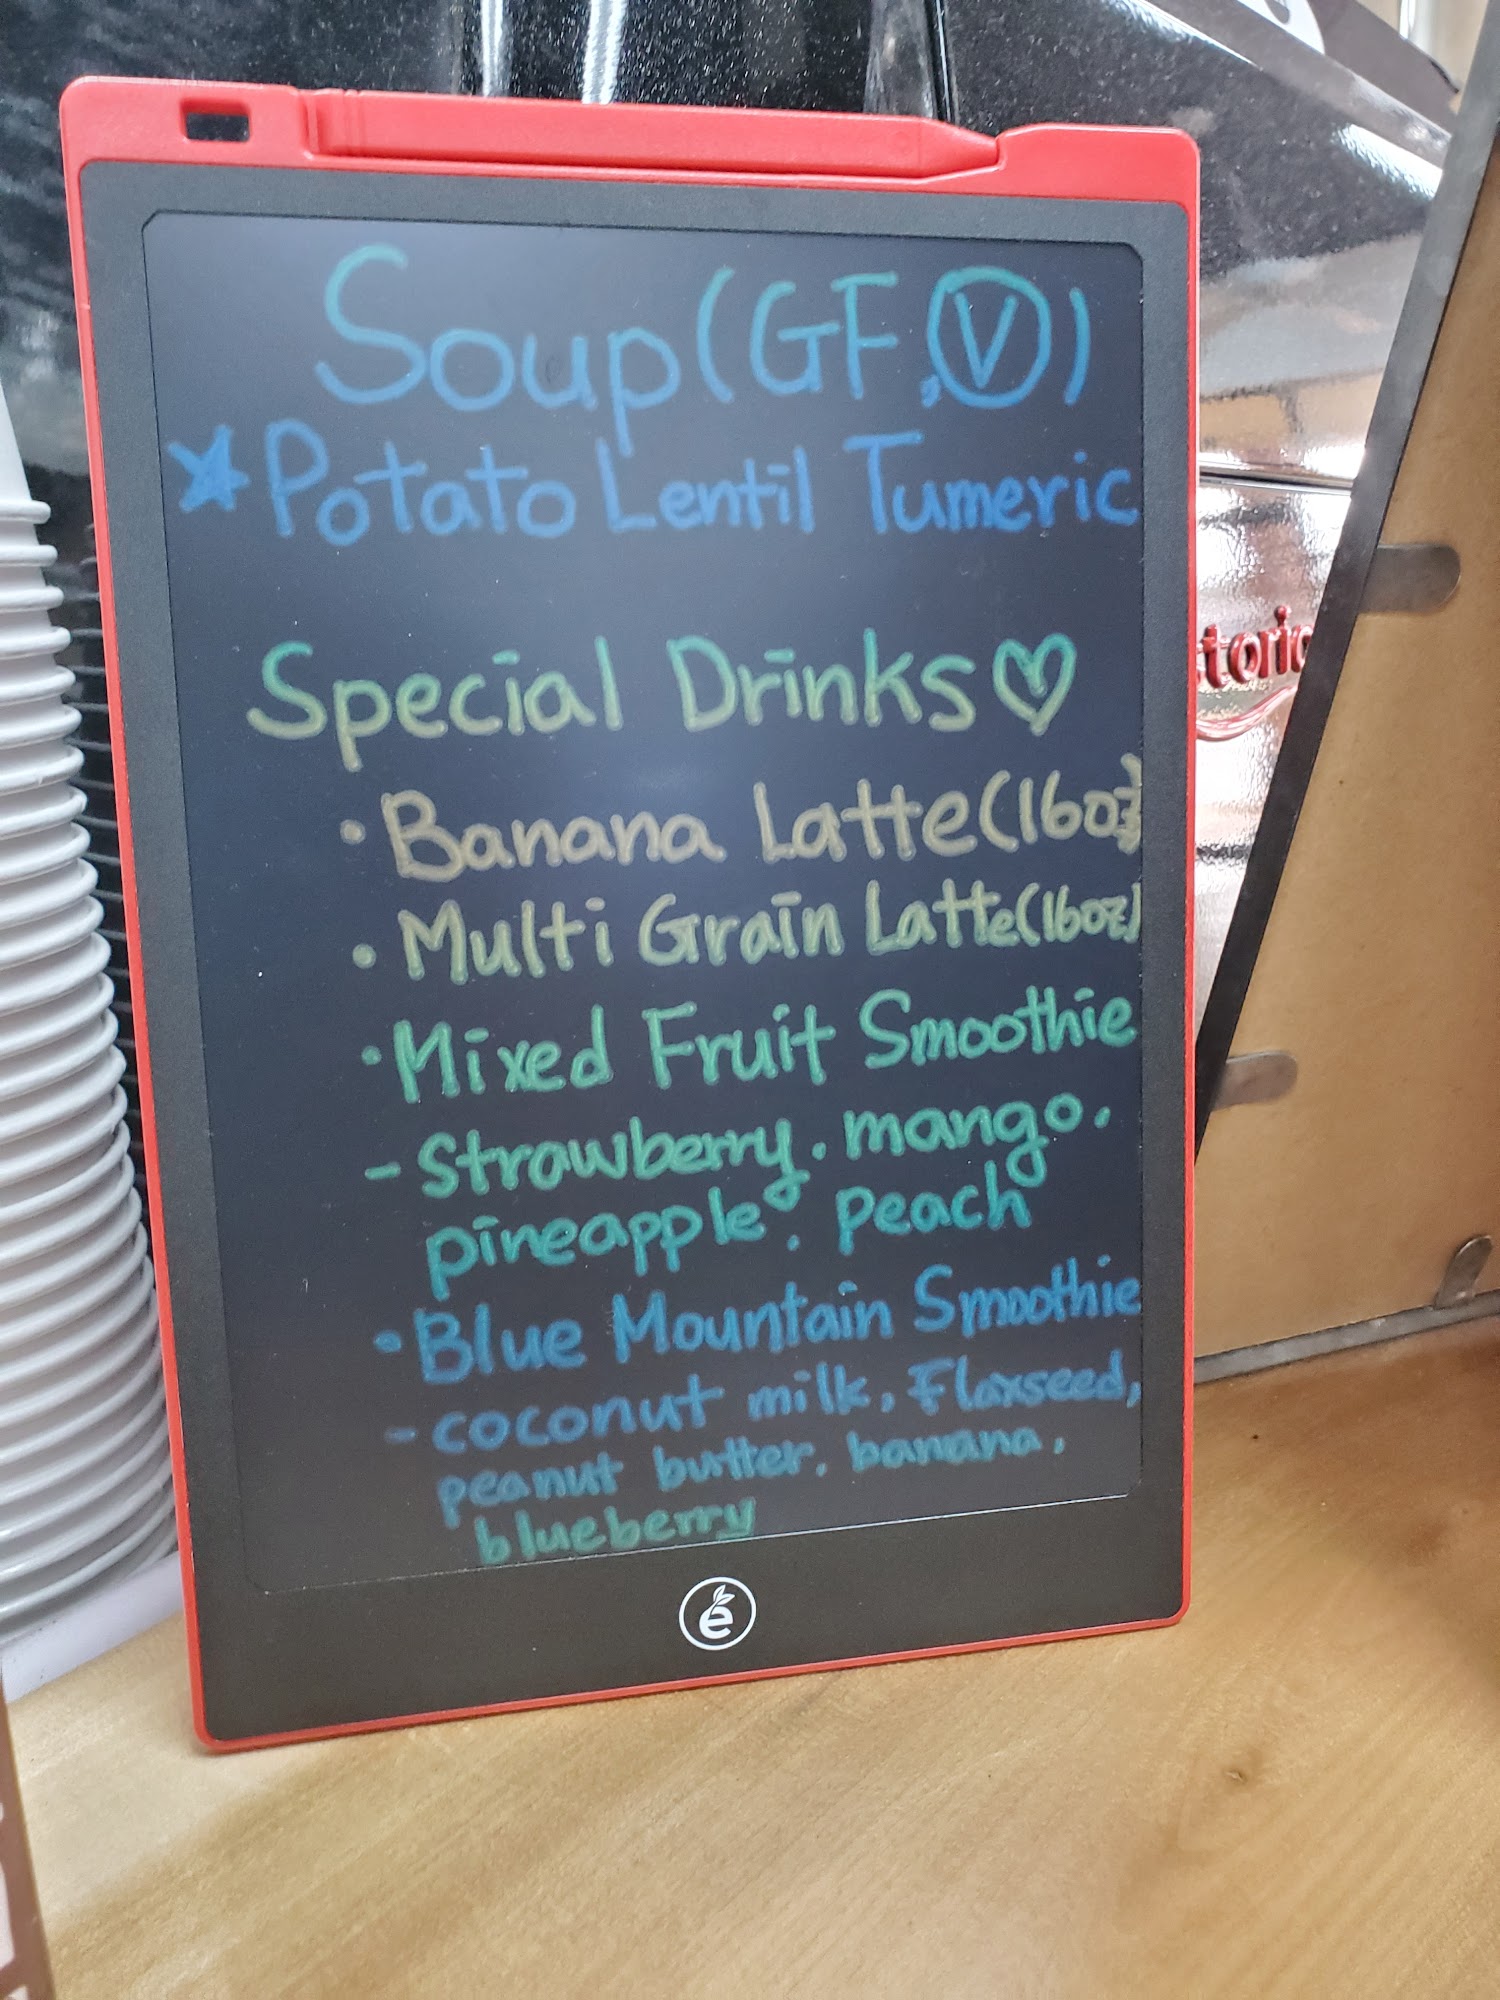 Soup (GF, Ⓥ)
☆Potato Lentil Tumeric
Special Drinks♡
• Banana Latte (16oz)
• Multi Grain Latte (16oz)
• Mixed Fruit Smoothie
- Strawberry. mango.
pineapple. peach
• Blue Mountain Smoothie
- coconut milk. Flaxseed,
peanut butter. banana.
blueberry
é